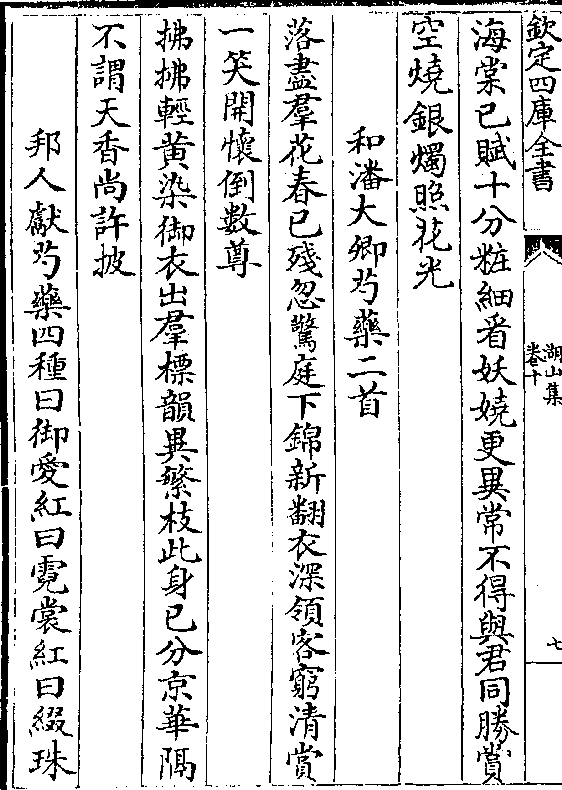 欽定四庫全書
湖山集
卷十
七
海棠已賦十分粧細看妖嬈更異常不得與君同勝賞
空燒銀燭照花光
和潘大卿芍藥二首
落盡羣花春已殘忽驚庭下錦新翻衣深領客窮清賞
一笑開懷倒數尊
拂拂輕黃染御衣出羣標韻異繁枝此身已分京華隔
不謂天香尚許披
邦人獻芍藥四種曰御愛紅曰霓裳紅曰綴珠